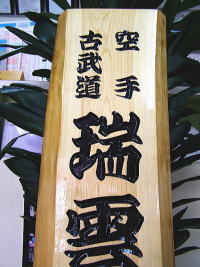 空手
古武道
瑞雲